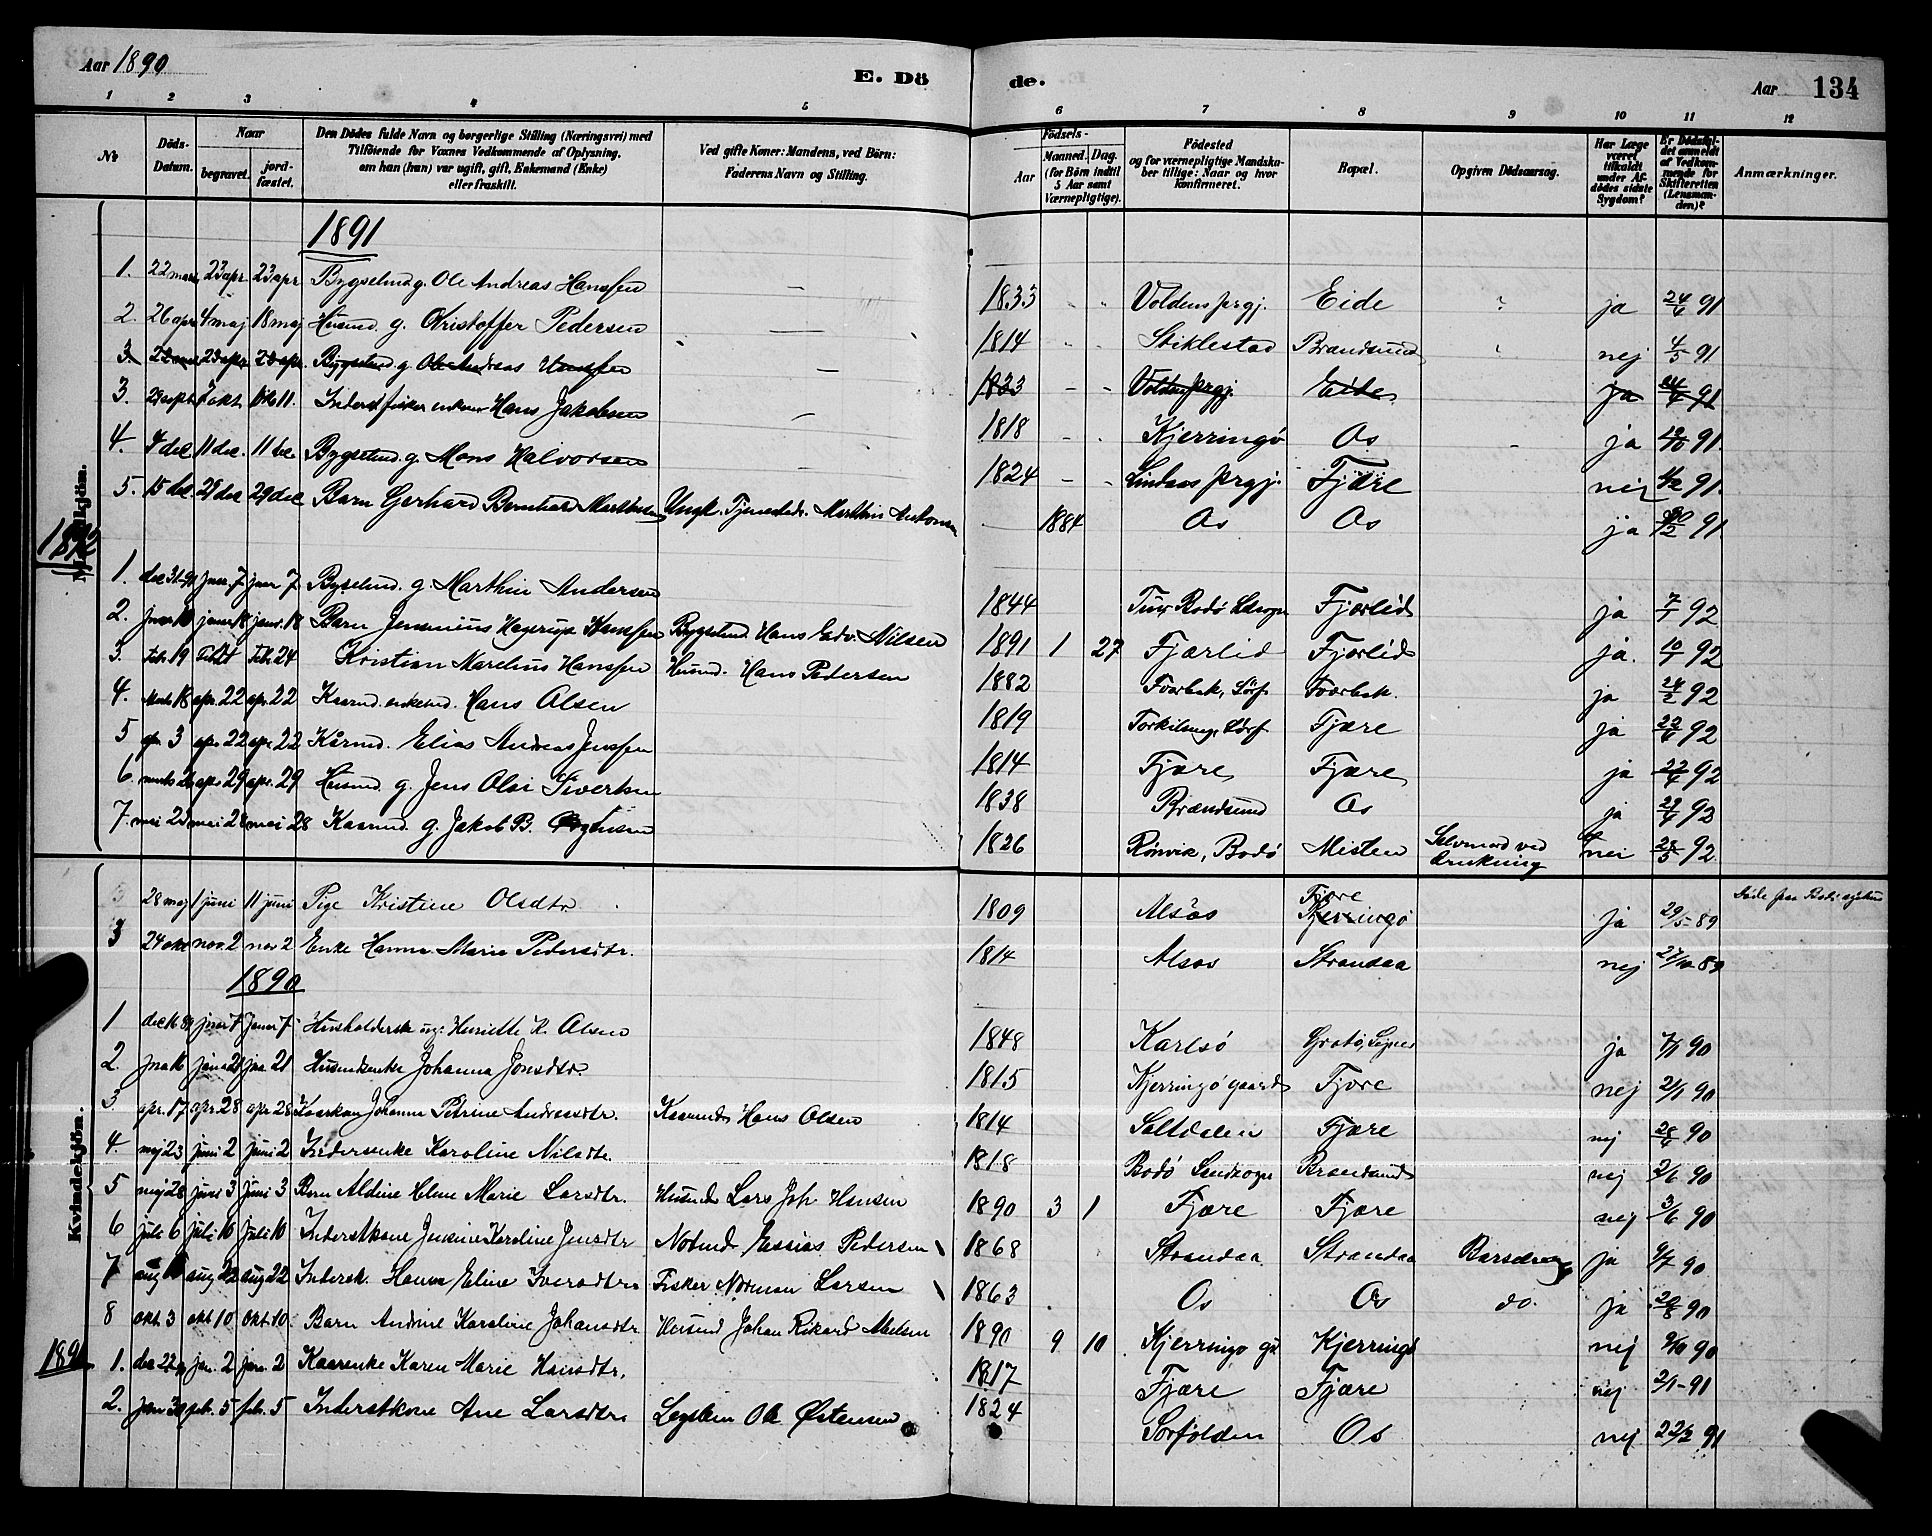 Aar 1890
E. Dö
de.
Aar 134
1 2 3 4 5 6 7 8 9 10 11 12
No
Döds-Datum.
Naar
begravet.
jord-fæstet.
Den Dödes fulde Navn og borgerlige Stilling (Næringsvei) med
Tilföiende for Voxnes Vedkommende af Oplysning,
om han (hun) var ugift, gift, Enkemand (Enke)
eller fraskilt.
Ved gifte Koner: Mandens, ved Börn:
Faderens Navn og Stilling.
Födsels-
Aar
Maaned. Dag.
(for Börn indtil
5 Aar samt
Værnepligtige).
Födested
og for værnepligtige Mandska-
ber tillige: Naar og hvor
konfirmeret.
Bopæl.
Opgiven Dödsaarsag.
Har Læge
været
tilkaldt
under Af-
dödes sidste
Sygdom?
Er Dödsfal-
det anmeldt
af Vedkom-
mende for
Skifteretten
(Lensman-
den)?
Anmærkninger.
Mandkjön.
1891
1. 22 mars 23 apr 23 apr Bygselmd g. Ole Andreas Hanssen — 1833 Voldens prgj. Eide ja 24/4 91
2. 26 apr 4 maj 18 maj Husmd. g. Kristoffer Pedersen — 1814 Stiklestad Brandsund nej 4/5 91
3. 22 mars 23 apr 23 apr. Bygselmd g Ole Andreas Hanssen — 1833 Voldens prgj. Eide ja 24/4 91
3. 29 sept 7 okt. Inderst fisker enkem Hans Jakobsen — 1818 Kjerringö Os ja 91.
4. 4 dec 11 dec. 11 dec Bygselmd. g. Mons Halvorsen 1824 Lindaas prgj. Fjære nej 91.
5. 15 dec 29 dec 29 dec Barn Gerhard Bernhard Marthins Ungk. Tjenestedr. Marthin Antonsen 1884 Os Os ja 91
1892
1. dec 31-91 januar 7 januar 7 Bygselmd. g. Marthin Andersen 1844 Bodö Ldsogn Fjærlid ja 7/1 92
2. januar 18 januar 18 Barn Jensenius Hagerup Hanssen Bygselmd. Hans Edv. Nilsen 1891 1 27 Fjærlid Fjærlid ja. 10/1 92
3. Feb. 19 Feb 24 Feb. 24 Kristian Marelius Hanssen Husmd. Hans Pedersen 1882 Tværbak, Sörf. Tværbak. ja 24/2 92
4. Marts 18 apr. 22 apr. 22 Kaarmd. enkemd. Hans Olsen 1819 Sörf Fjære ja 92
5 apr 3 apr 22 apr 22 Kårmd. Elias Andreas Jenssen 1814 Fjære Fjære ja 22/4 92
6. marts 26 apr 29 apr. 29 Husmd g. Jens Olai Sivertsen 1838 Brændsund Os ja 92
7. mei 23 mei 28 mei 28 Kaarmd. g. Jakob B. 1826 Rönvik, Bodö Misten Selvmord ved Drukning nei 92
Kvindekjön.
28 maj 1 juni 11 juni Pige Kristine Olsdtr. 1809 Alsos Fjære Kjerringö ja 29/5-89
3 24 okt nov. 2 nov 2 Enke Hanna Marie Pedersdtr. 1814 Alsos Strandaa nej 27/10-89
1890
1 dec 16 89 januar 7 Januar 7 Husholderske ug: Henriette K. Olsen 1848 Karlsö Grotö, Leines ja 7/1 90
2. jan 16 jan 21 jan 21 Husmdsenke Johanna Jonsdtr. 1815 Kjerringö gaard Fjære nej 21/1 90
3. apr. 17 apr. 28 apr 28 Kaarkone Johanna Petrine Andreasdtr. Kaarmd Hans Olsen 1814 Saltdalen Fjære nej 28/4 90
4. maj 23 juni 2 juni 2 Inderstenke Karoline Nilsdtr. 1818 Bodö Landsogn Brandsund nej 2/6 90
5 maj 28 juni 3 juni 3 Barn Aldine Elene Marie Larsdtr. Husmd Lars Joh Hansen 1890 3 1 Fjære Fjære nej 3/6 90
6 juli 6 juli 10 juli 10 Inderstkone Jensine Karoline Jensdtr Notmd Essias Pedersen 1868 Strandaa Strandaa Barseng ja 90
7 aug aug 22 aug 22 Inderstk. Hanna Eline Iversdtr. Fisker Norman Larsen 1863 Os Os do. ja 20/8 90
8 okt. 3 okt 10 okt. 10 Barn Andrine Karoline Johansdtr Husmd Johan Rikard Nielsen 1890 9 10 Kjerringö gd Kjerringö nej 9/10 90
1891
1. dec 22 90 jan. 2 jan. 2 Kaarenke Karen Marie Hansdtr. 1817 Fjære Fjære nej 2/1-91
2. jan 30 feb. 5 feb. 5 Inderstkone Ane Larsdtr Ole Östensen 1824 Sörfolden Os nej 91